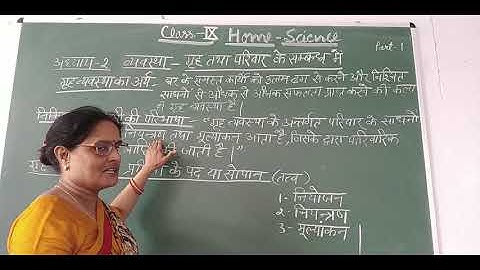 Class-IX Home-Science
Part-1
अध्याय-2 व्यवस्था - गृह तथा परिवार के सम्बन्ध में
गृहव्यवस्था का अर्थ - घर के समस्त कार्यों को उत्तम ढंग से करने और निश्चित
साधनों से अधिक से अधिक सफलता प्राप्त करने की कला
ही गृह व्यवस्था है।
की परिभाषा - "गृह व्यवस्था के अन्तर्गत परिवार के साधनों
नियन्त्रण तथा मूल्यांकन आता है, जिसके द्वारा पारिवारिक
की जाती है।"
के पद या सोपान (तत्व)
1- नियोजन
2- नियन्त्रण
3- मूल्यांकन